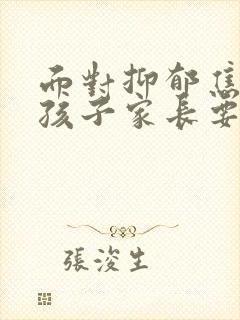 而對抑郁焦
孩子家長要
張浚生